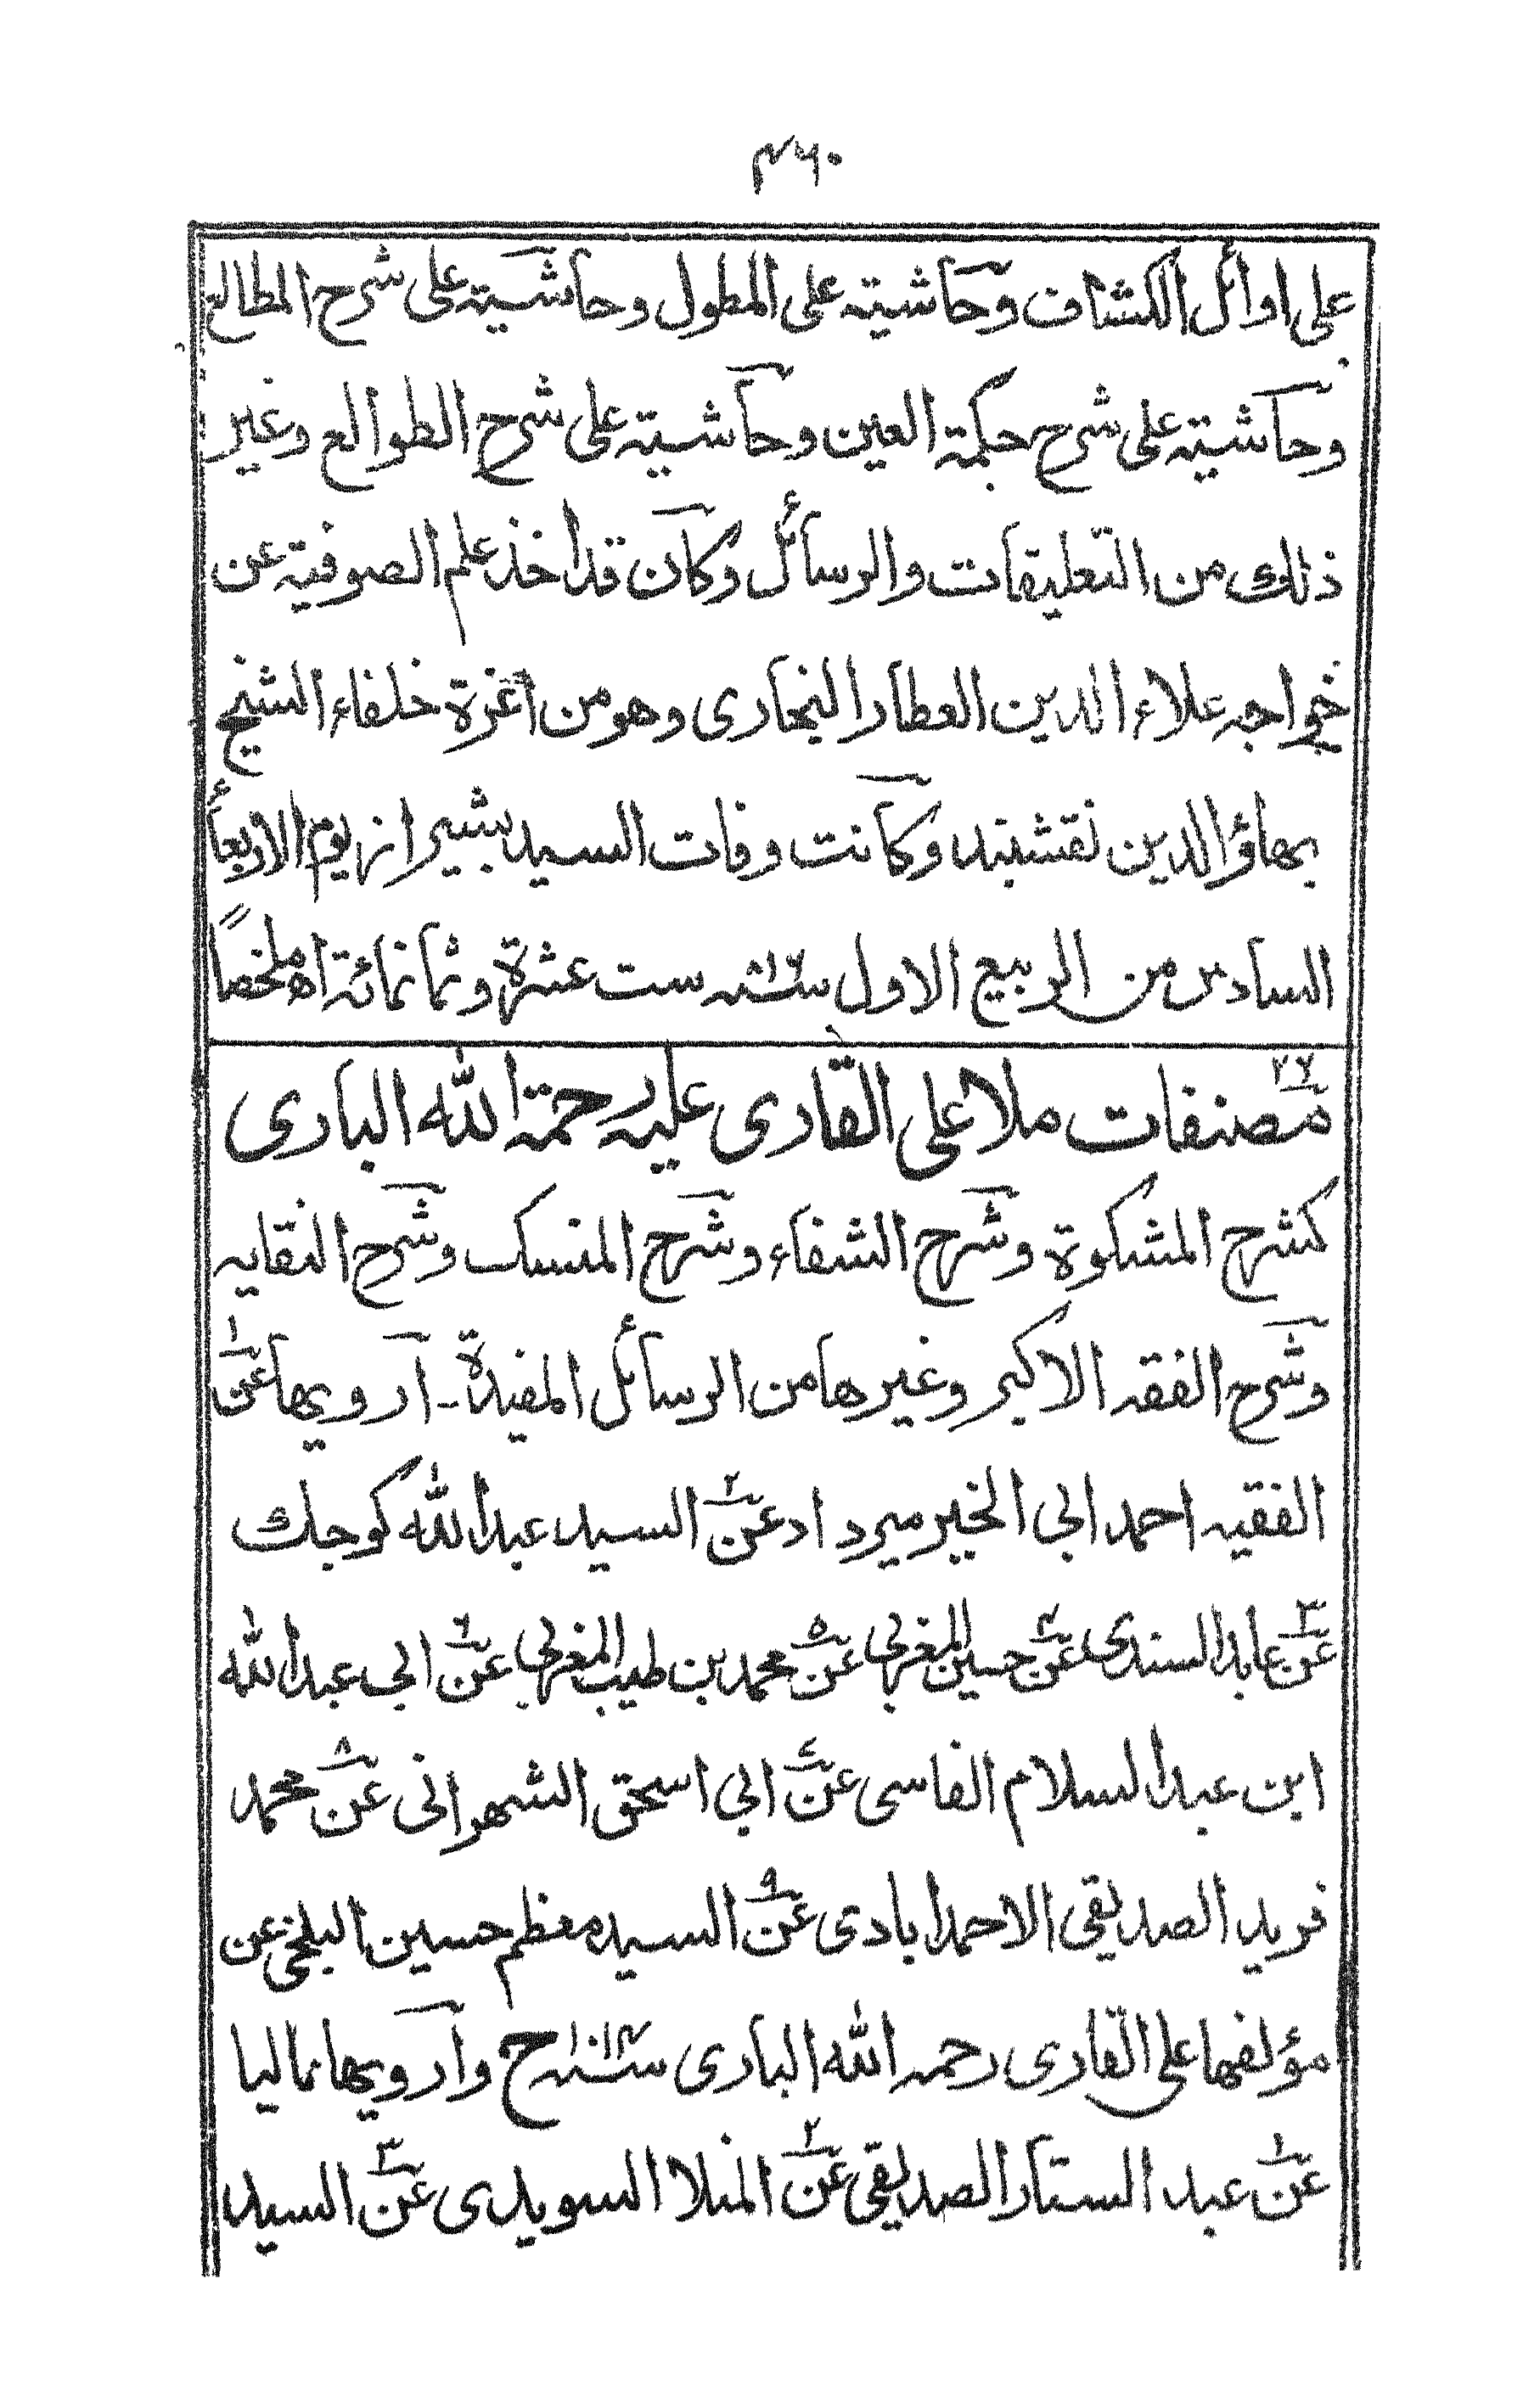 ۴۶۰
على اوائل الكشاف وحاشيته على المطول وحاشيته على شرح المطالع
وحاشيته على شرح حكمة العين وحاشيته على شرح الطوالع وغير
ذلك من التعليقات والرسائل وكان قد اخذ علم الصوفية عن
خواجه علاء الدين العطار البخارى وهو من اعزة خلفاء الشيخ
بهاؤ الدين نقشبند وكانت وفات السيد بشيراز يوم الاربعاء
السادس من الربيع الاول سنة ۸۱۶ ست عشرة وثمانمائة اه ملخصاً
۲۶ مصنفات ملا على القارى عليه رحمة الله البارى
كشرح المشكوة وشرح الشفاء وشرح المنسك وشرح النقايه
وشرح الفقه الاكبر وغيرها من الرسائل المفيدة ـ اَرويها عن ۱
الفقيه احمد ابى الخير ميرداد عن ۲ السيد عبد الله كوجك
عن ۳ عابد السندى عن ۴ حسين المغربى عن ۵ محمد بن طيب المغربى عن ۶ ابى عبد الله
ابن عبد السلام الفاسى عن ۷ ابى اسحق الشهرانى عن ۸ محمد
فريد الصديقى الاحمد ابادى عن ۹ السيد معظم حسين البلخى عن
مؤلفها على القارى رحمه الله البارى سنة ۱۰۱۴ ح وارويها نماليا
عن ۱ عبد الستار الصديقى عن ۲ المنلا السويدى عن ۳ السيد